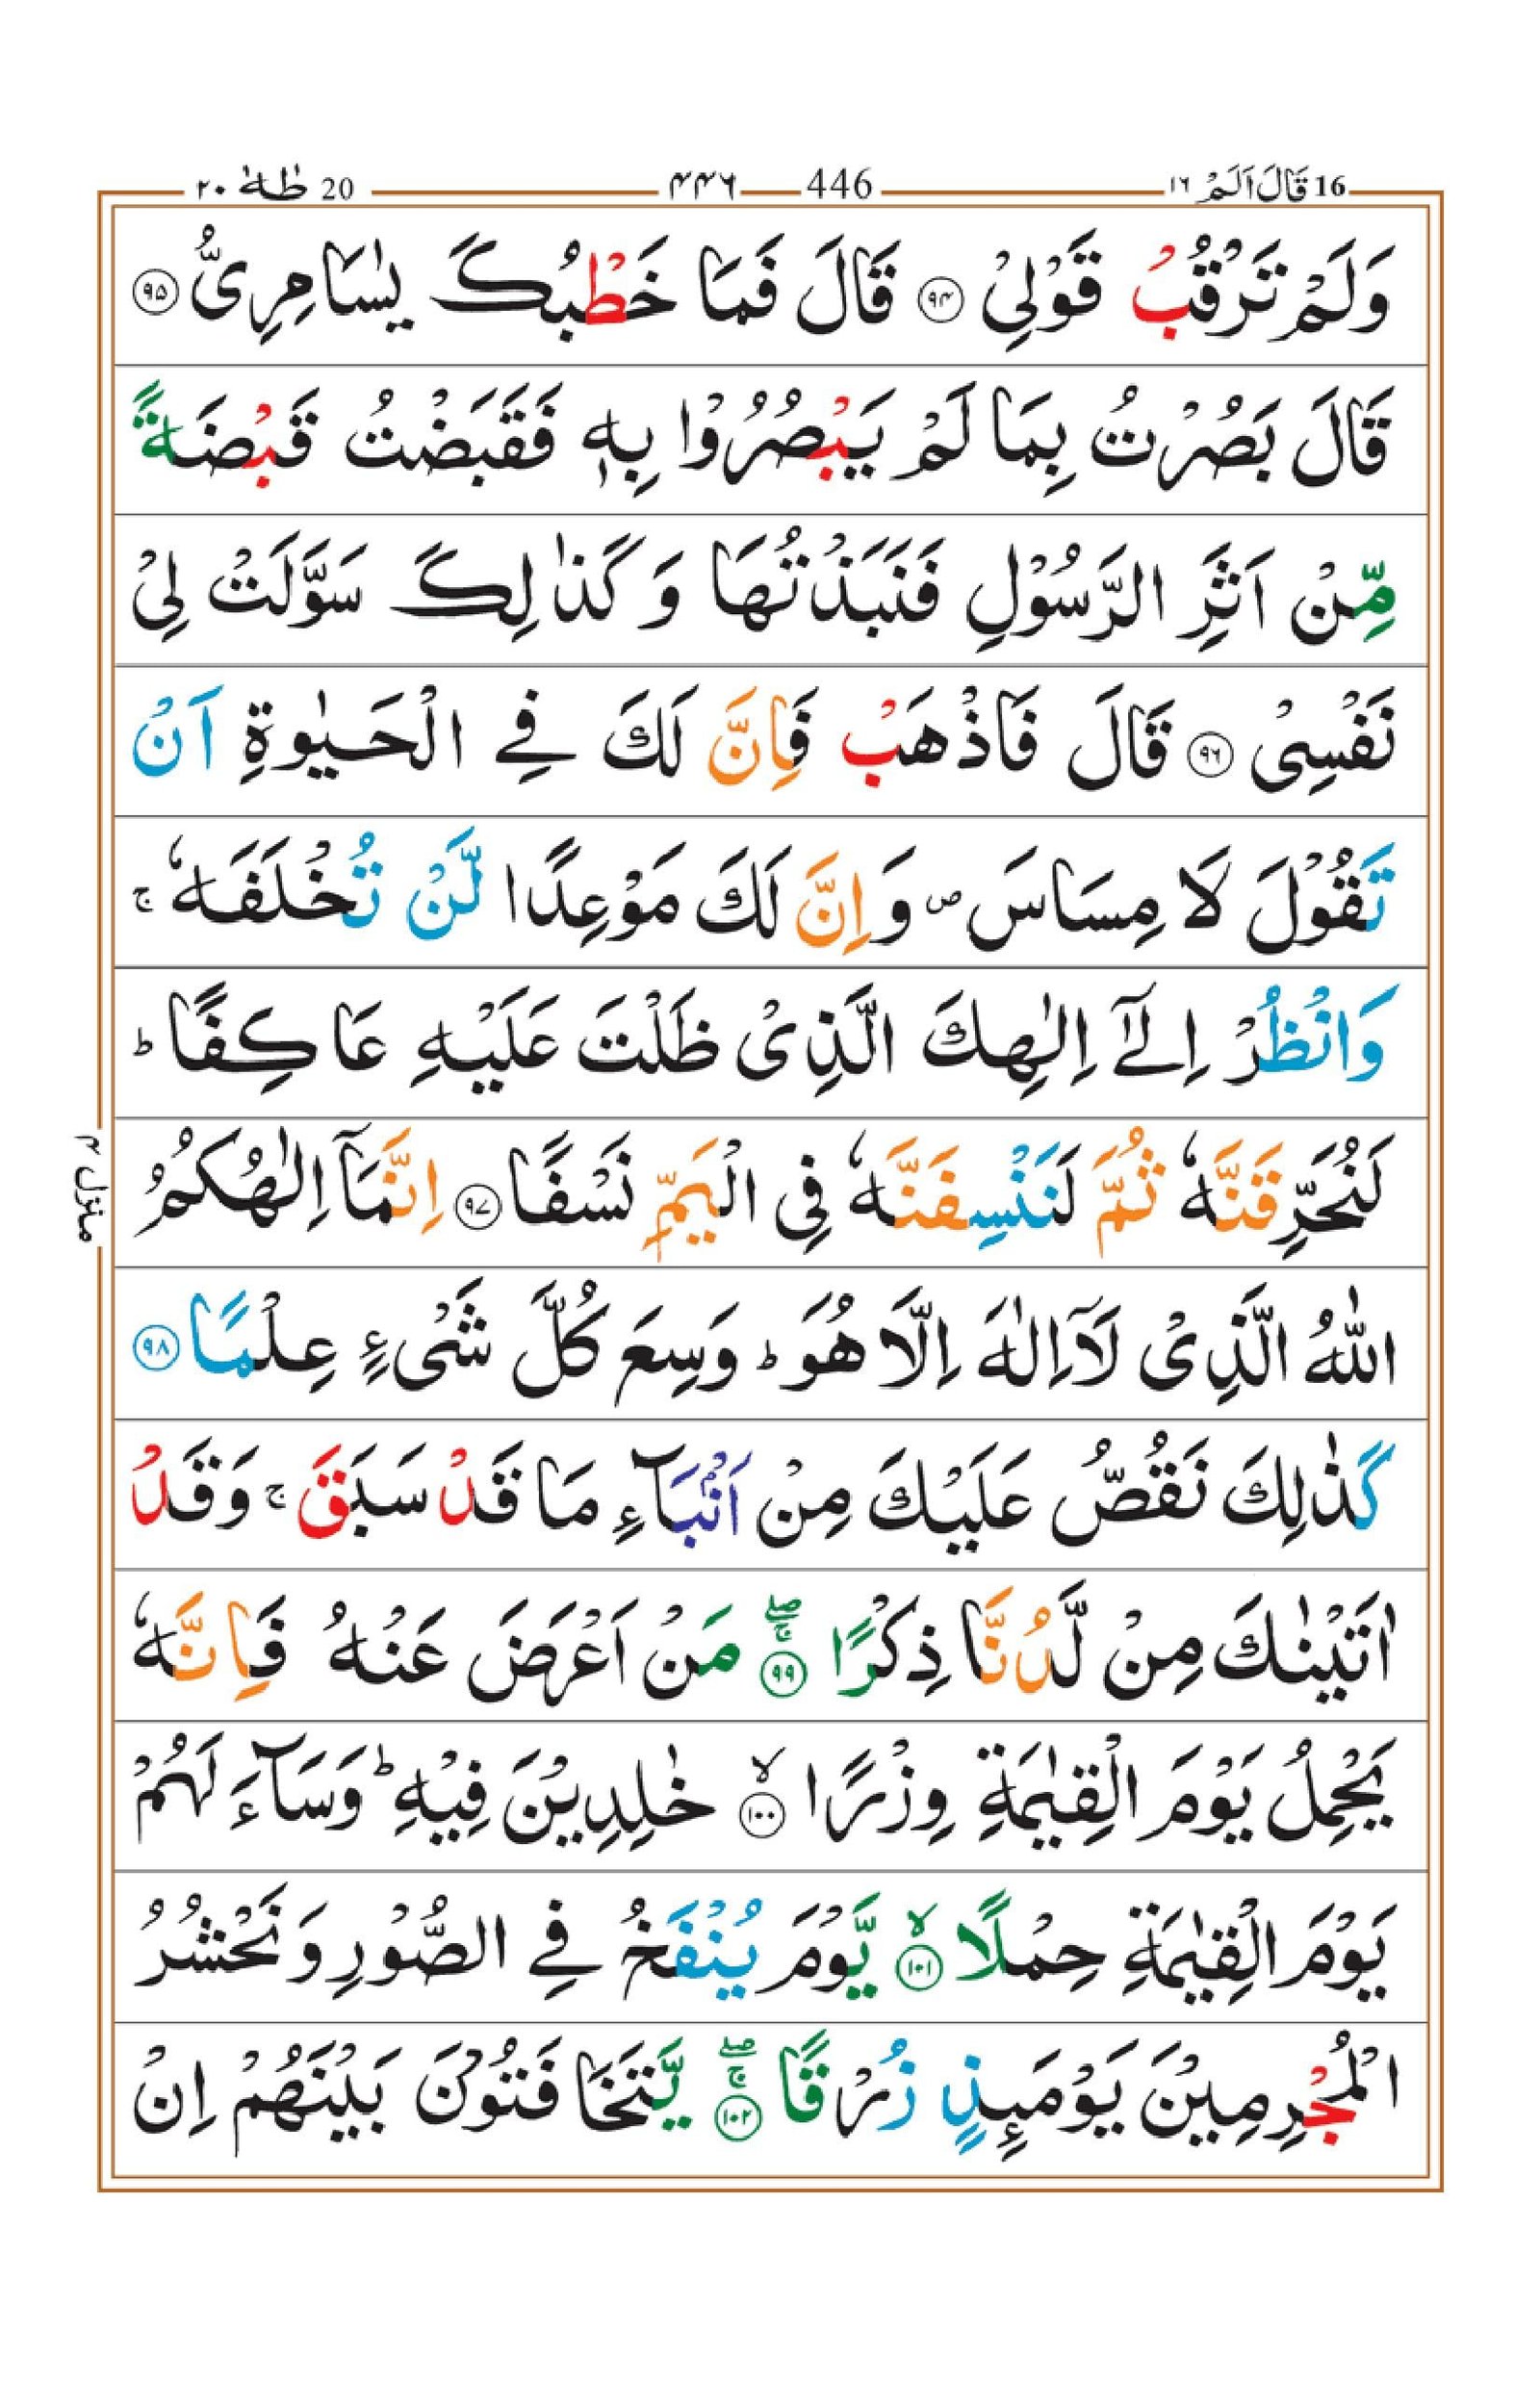 16 قَالَ اَلَمْ ١٦ 446 ۴۴۶ 20 طٰهٰ ٢٠
وَلَمْ تَرْقُبْ قَوْلِیْ ﴿۹۴﴾ قَالَ فَمَا خَطْبُكَ یٰسَامِرِیُّ ﴿۹۵﴾
قَالَ بَصُرْتُ بِمَا لَمْ یَبْصُرُوْا بِهٖ فَقَبَضْتُ قَبْضَةً
مِّنْ اَثَرِ الرَّسُوْلِ فَنَبَذْتُهَا وَكَذٰلِكَ سَوَّلَتْ لِیْ
نَفْسِیْ ﴿۹۶﴾ قَالَ فَاذْهَبْ فَاِنَّ لَكَ فِی الْحَیٰوةِ اَنْ
تَقُوْلَ لَا مِسَاسَ ۪ وَاِنَّ لَكَ مَوْعِدًا لَّنْ تُخْلَفَهٗ ۚ
وَانْظُرْ اِلٰۤی اِلٰهِكَ الَّذِیْ ظَلْتَ عَلَیْهِ عَاكِفًا ؕ
لَنُحَرِّقَنَّهٗ ثُمَّ لَنَنْسِفَنَّهٗ فِی الْیَمِّ نَسْفًا ﴿۹۷﴾ اِنَّمَاۤ اِلٰهُكُمُ
اللّٰهُ الَّذِیْ لَاۤ اِلٰهَ اِلَّا هُوَ ؕ وَسِعَ كُلَّ شَیْءٍ عِلْمًا ﴿۹۸﴾
كَذٰلِكَ نَقُصُّ عَلَیْكَ مِنْ اَنْۢبَآءِ مَا قَدْ سَبَقَ ۚ وَقَدْ
اٰتَیْنٰكَ مِنْ لَّدُنَّا ذِكْرًا ﴿۹۹﴾ۖۚ مَنْ اَعْرَضَ عَنْهُ فَاِنَّهٗ
یَحْمِلُ یَوْمَ الْقِیٰمَةِ وِزْرًا ﴿۱۰۰﴾ۙ خٰلِدِیْنَ فِیْهِ ؕ وَسَآءَ لَهُمْ
یَوْمَ الْقِیٰمَةِ حِمْلًا ﴿۱۰۱﴾ۙ یَّوْمَ یُنْفَخُ فِی الصُّوْرِ وَنَحْشُرُ
الْمُجْرِمِیْنَ یَوْمَىِٕذٍ زُرْقًا ﴿۱۰۲﴾ۖۚ یَّتَخَافَتُوْنَ بَیْنَهُمْ اِنْ
منزل ۴